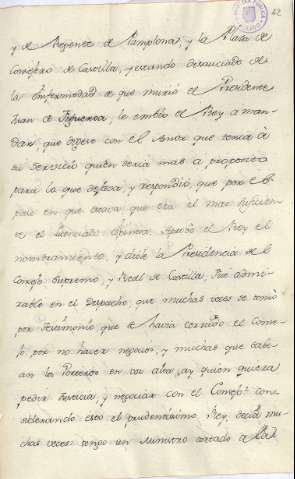 42
y de Regente de Pamplona, y la Plaza de
Consejero de Castilla, y estando desauciado de
la enfermedad de que murió el Presidente
Juan de Figueroa, le embio el Rey a man-
dar, que dijese con el Amor que tenia à
su servicio quien seria mas a proposito
para lo que dejava, y respondió, que por el
en que estava que era el mas suficien-
te el Licenciado Espinosa. Aprobó el Rey el
nombramiento, y dióle la Presidencia de el
Consejo Supremo, y Real de Castilla, fue admi-
rable en el Despacho, que muchas veces se tomó
por testimonio que se havia cerrado el Conse-
jo, por no haver negocios, y muchas que dab-
an los Porteros en voz alta, ay quien quiera
pedir Justicia, y negociar con el Consejo? con-
siderando esto el prudentisimo Rey, decia mu-
chas veces tengo un ministro cortado a la